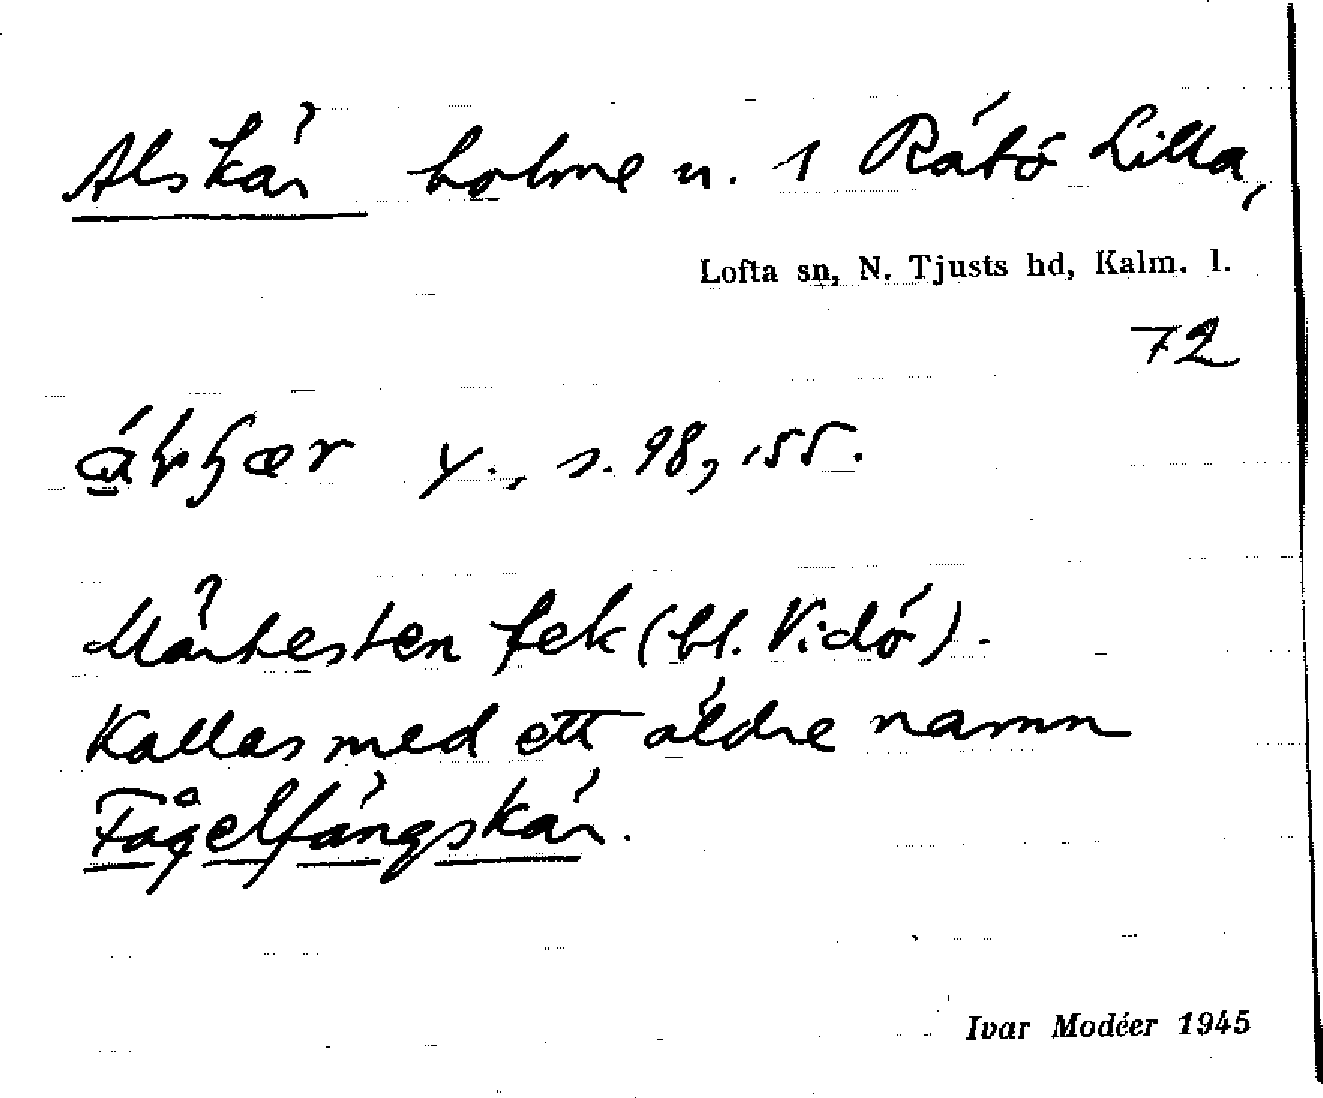 Alskär holme u. 1 Rätö Lilla,
Lofta sn, N. Tjusts hd, Kalm. l.
72
s. 98, 155.
Märhesten fek (bl. Vidö).
Kallas med ett äldre namn
Fågelfängskär.
Ivar Modéer 1945